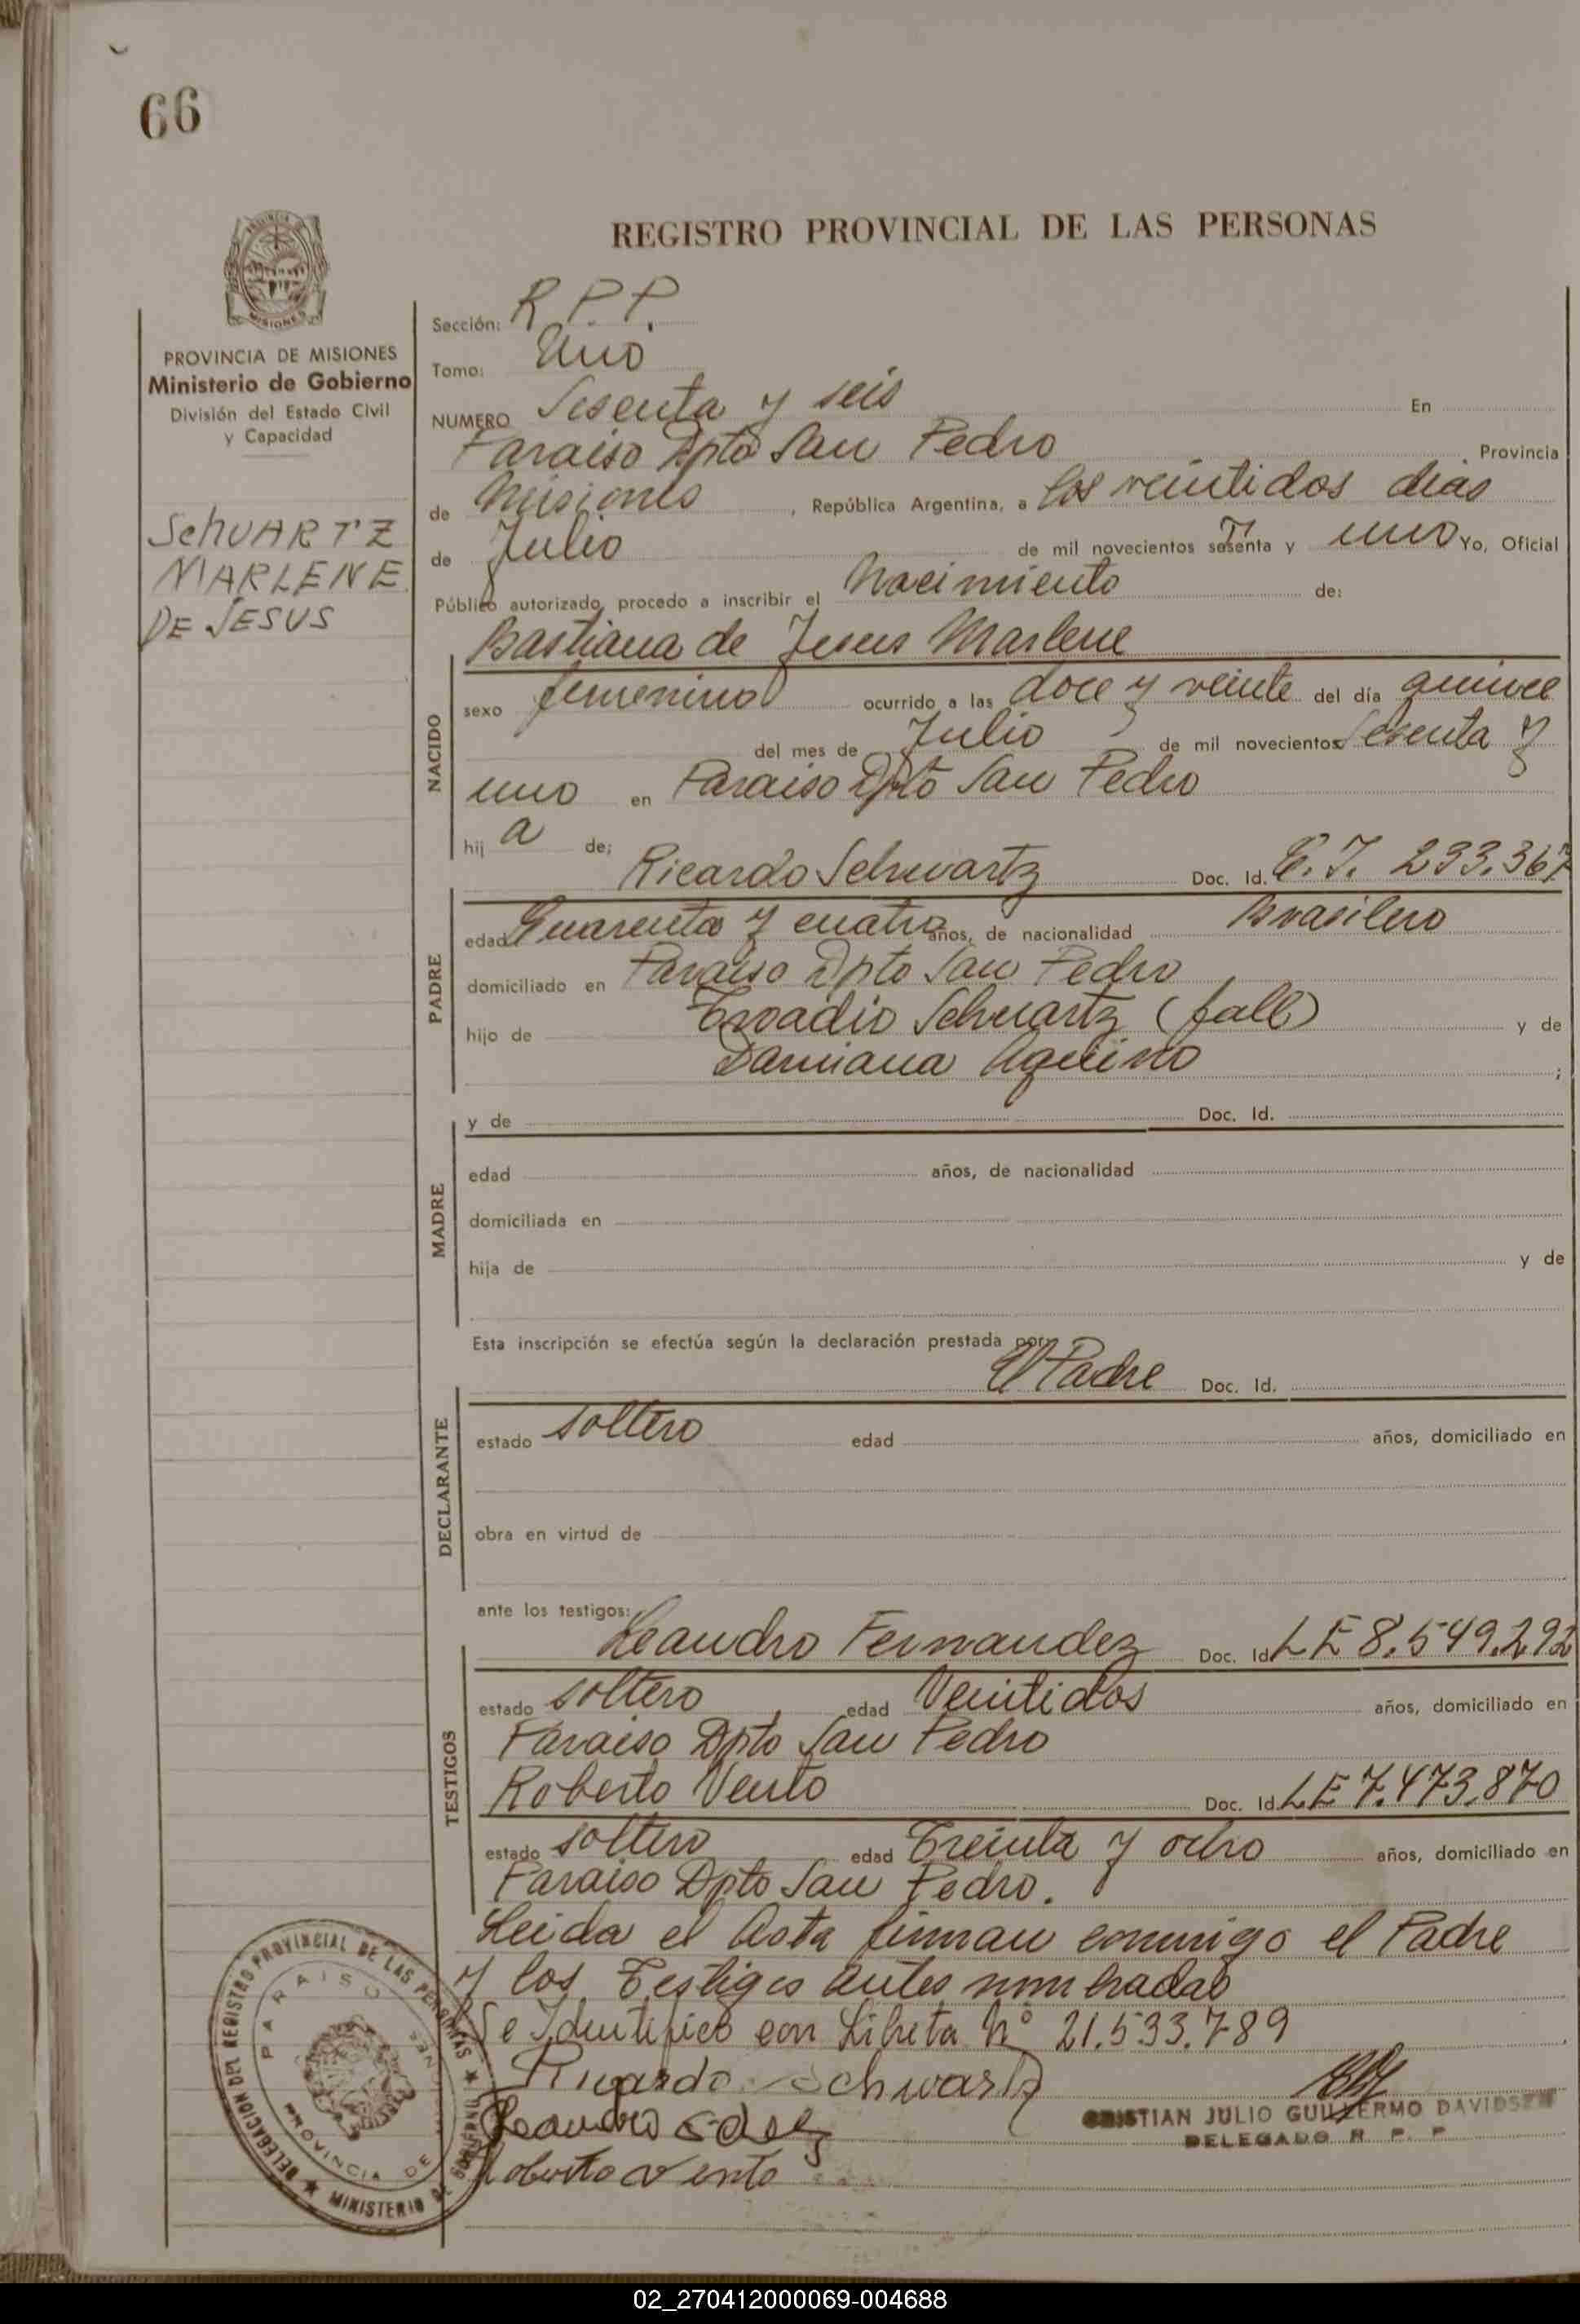 66
REGISTRO PROVINCIAL DE LAS PERSONAS
MISIONES
PROVINCIA DE MISIONES
Ministerio de Gobierno
División del Estado Civil
y Capacidad
SCHUARTZ
MARLENE
DE JESUS
Sección: R. P. P.
Tomo: Uno
NUMERO Sesenta y seis En
Paraiso Dpto San Pedro Provincia
de Misiones, República Argentina, a los veintidos dias
de Julio de mil novecientos setenta y uno Yo, Oficial
Público autorizado, procedo a inscribir el Nacimiento de:
Bastiana de Jesus Marlene
NACIDO
sexo femenino ocurrido a las doce y veinte del día quince
del mes de Julio de mil novecientos sesenta y
uno en Paraiso Dpto San Pedro
hij a de;
Ricardo Schwartz Doc. Id. C.I. 233.367
PADRE
edad Cuarenta y cuatro años, de nacionalidad Brasilero
domiciliado en Paraiso Dpto San Pedro
hijo de Troadio Schuartz (fall) y de
Damiana Aquino ;
MADRE
y de Doc. Id.
edad años, de nacionalidad
domiciliada en
hija de y de
Esta inscripción se efectúa según la declaración prestada por:
El Padre Doc. Id.
DECLARANTE
estado soltero edad años, domiciliado en
obra en virtud de
ante los testigos:
Leandro Fernandez Doc. Id. LE 8.549.292
TESTIGOS
estado soltero, edad Veintidos años, domiciliado en
Paraiso Dpto San Pedro
Roberto Vento Doc. Id. LE 7.473.870
estado soltero edad Treinta y ocho años, domiciliado en
Paraiso Dpto San Pedro.
Leida el Acta firman conmigo el Padre
y los Testigos antes nombrados
Se Identifico con Libreta Nº 21.533.789
Ricardo Schwartz
Leandro
Roberto Vento
CRISTIAN JULIO GUILLERMO DAVIDSEN
DELEGADO R. P. P.
DELEGACION DEL REGISTRO PROVINCIAL DE LAS PERSONAS ★ MINISTERIO DE GOBIERNO ★
PARAISO
PROVINCIA DE MISIONES
02_270412000069-004688